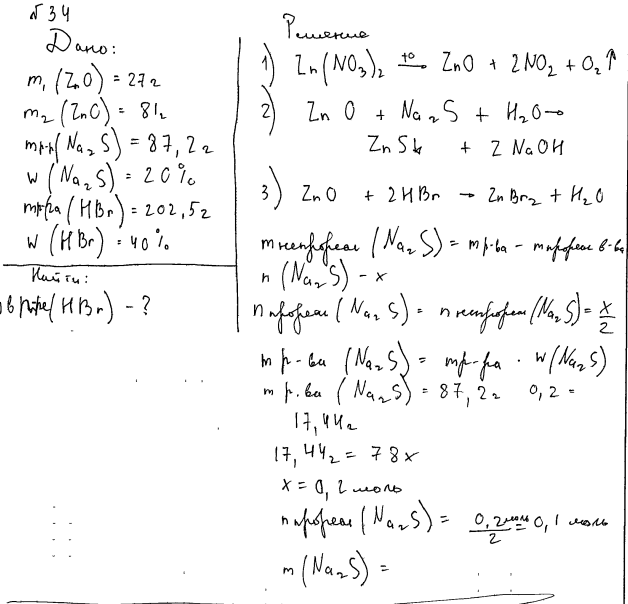 №34
Дано:
m₁(ZnO) = 27г
m₂(ZnO) = 81г
mр-р(Na₂S) = 87,2г
w(Na₂S) = 20%
mр-ра(HBr) = 202,5г
w(HBr) = 40%
Найти:
(HBr) - ?
Решение
1) Zn(NO₃)₂ →t° ZnO + 2NO₂ + O₂↑
2) ZnO + Na₂S + H₂O →
ZnS↓ + 2NaOH
3) ZnO + 2HBr → ZnBr₂ + H₂O
mнепрореаг(Na₂S) = mр-ва - mпрореаг в-ва
n(Na₂S) - x
nпрореаг(Na₂S) = nнепрореаг(Na₂S) = x/2
mр-ва(Na₂S) = mр-ра · w(Na₂S)
mр-ва(Na₂S) = 87,2г 0,2 =
17,44г
17,44г = 78x
x = 0,2 моль
nпрореаг(Na₂S) = 0,2моль/2 = 0,1 моль
m(Na₂S) =